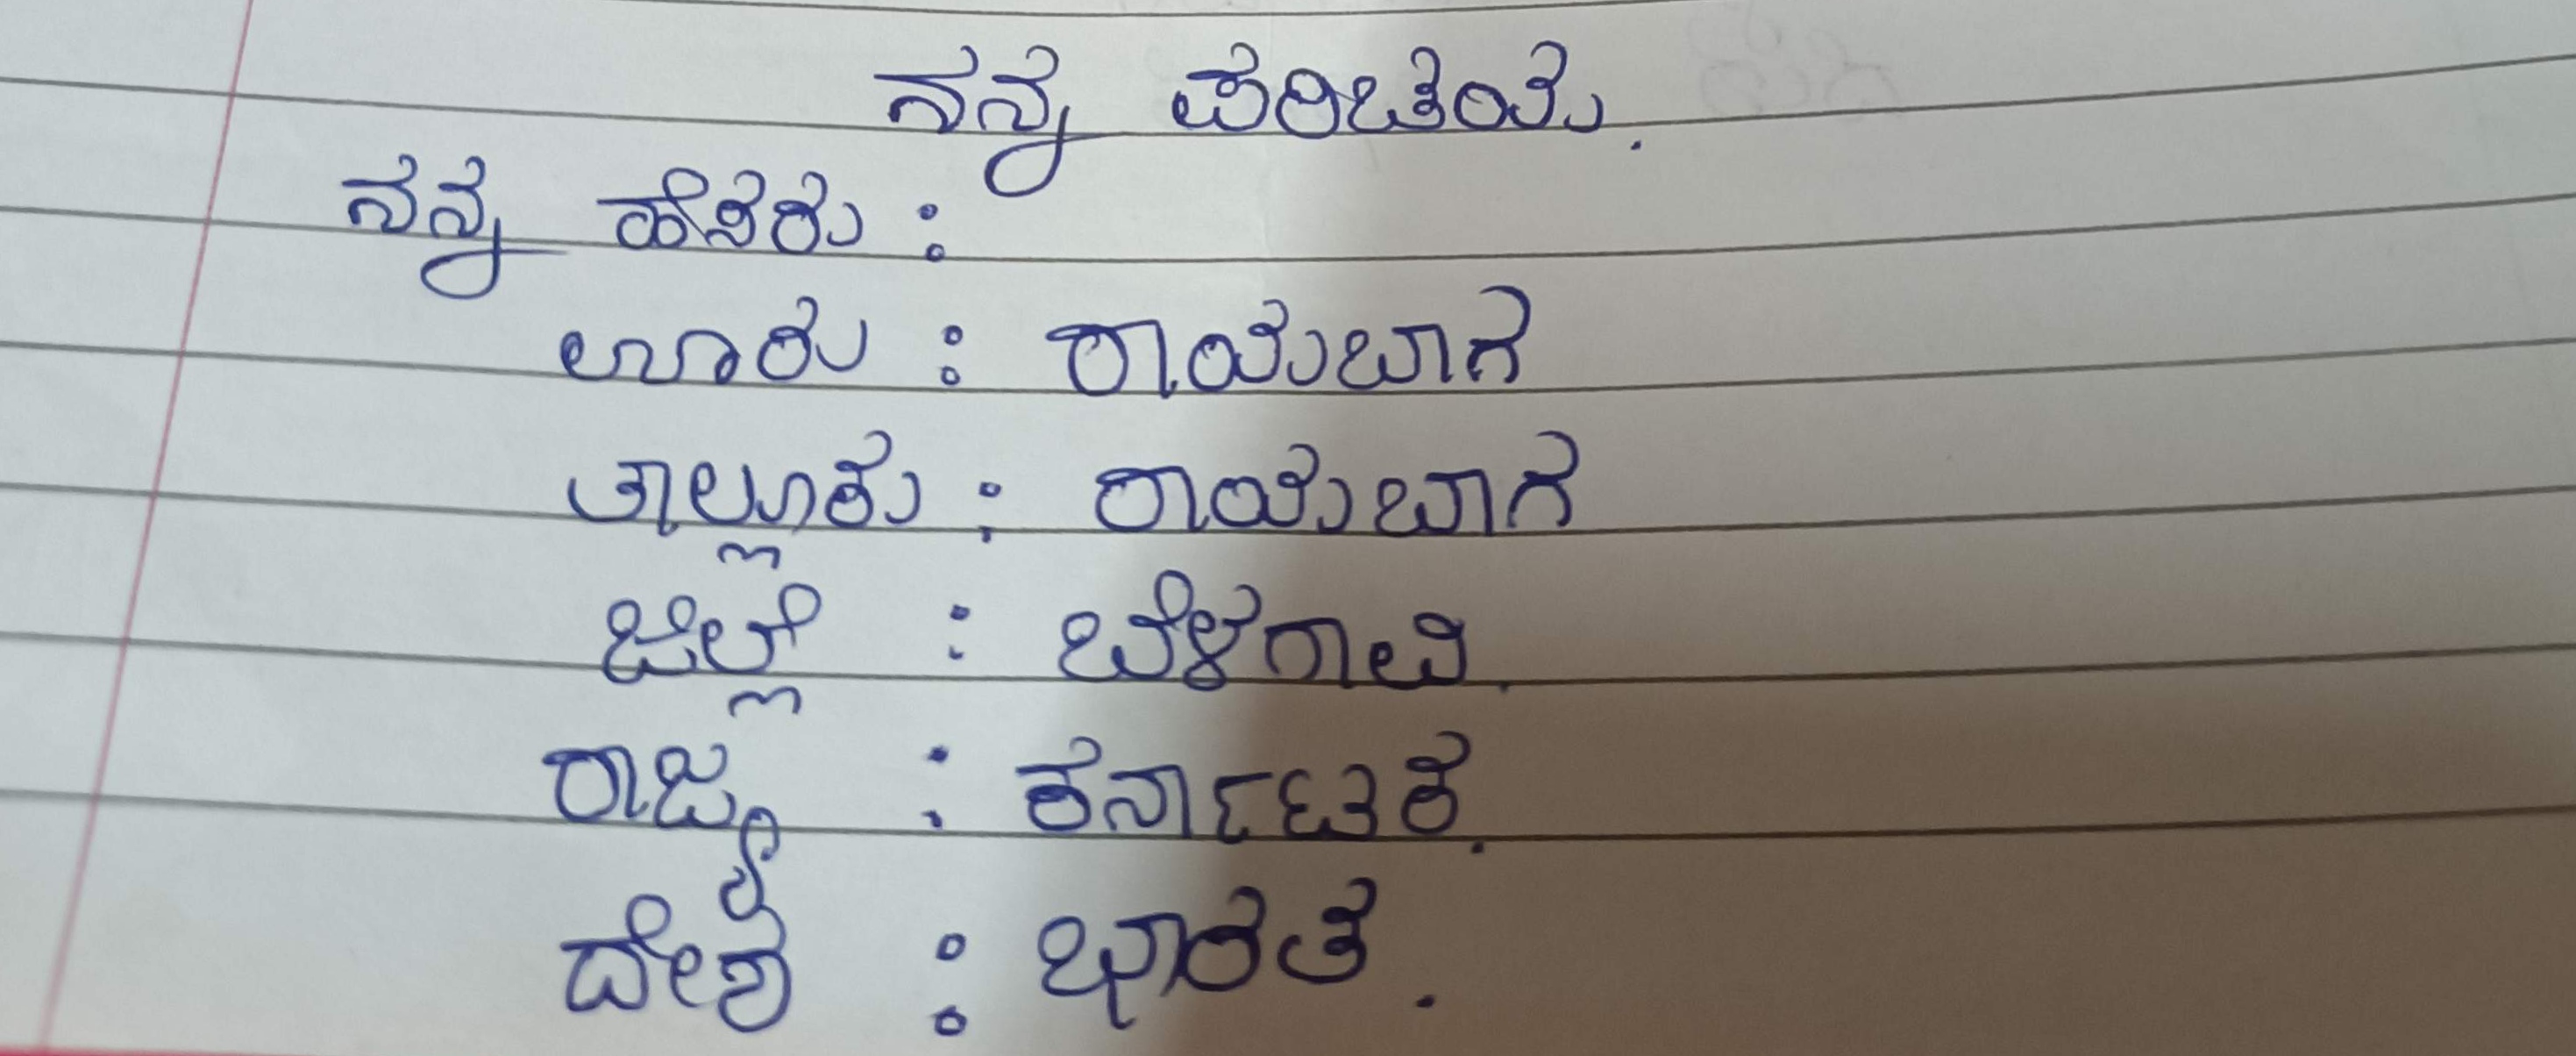 ನನ್ನ ಪರಿಚಯ.
ನನ್ನ ಹೆಸರು :
ಊರು : ರಾಯಬಾಗ
ತಾಲ್ಲೂರು : ರಾಯಬಾಗ
ಜಿಲ್ಲೆ : ಬೆಳಗಾವಿ.
ರಾಜ್ಯ : ಕರ್ನಾಟಕ.
ದೇಶ : ಭಾರತ.